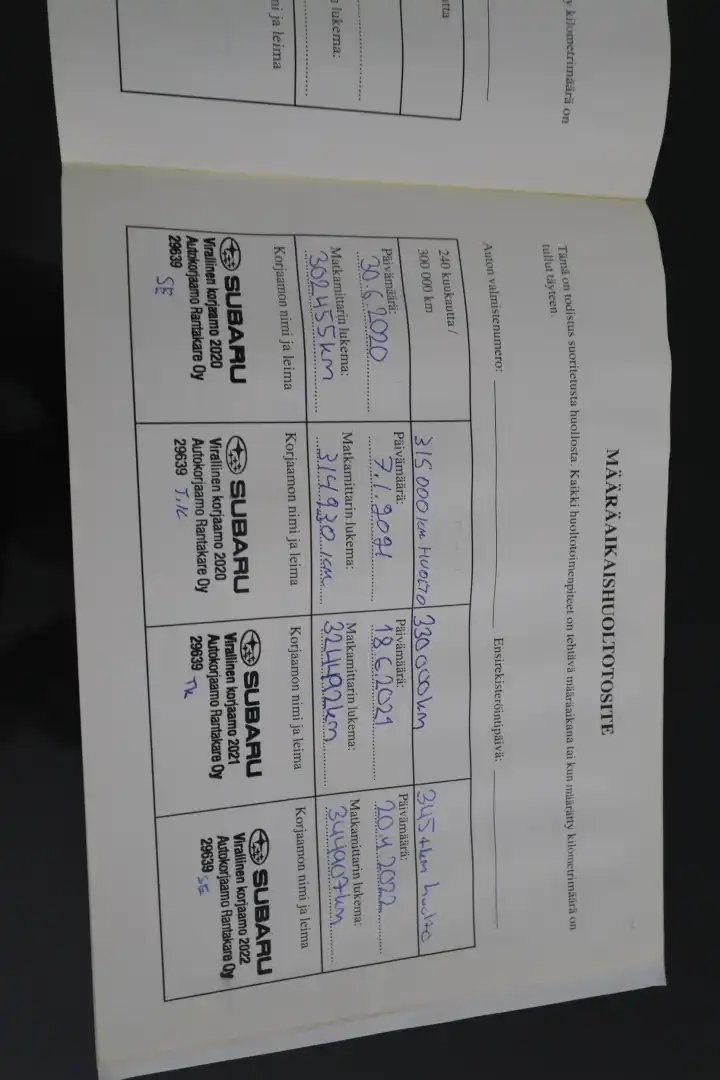 y kilometrimäärä on
tta
lukema:
ni ja leima
MÄÄRÄAIKAISHUOLTOTOSITE
Tämä on todistus suoritetusta huollosta. Kaikki huoltotoimenpiteet on tehtävä määräaikana tai kun määrätty kilometrimäärä on
tullut täyteen.
Auton valmistenumero:
Ensirekisteröintipäivä:
240 kuukautta /
300 000 km
Päivämäärä:
30.6.2020
Matkamittarin lukema:
302455km
Korjaamon nimi ja leima
SUBARU
Virallinen korjaamo 2020
Autokorjaamo Rantakare Oy
29639
SE
315 000 km HUOLTO
Päivämäärä:
7.1.2021
Matkamittarin lukema:
314930 km
Korjaamon nimi ja leima
SUBARU
Virallinen korjaamo 2020
Autokorjaamo Rantakare Oy
29639 T.K
330 000km
Päivämäärä:
18.6.2021
Matkamittarin lukema:
Korjaamon nimi ja leima
SUBARU
Virallinen korjaamo 2021
Autokorjaamo Rantakare Oy
29639 TK
345 tkm huolto
Päivämäärä:
20.4.2022
Matkamittarin lukema:
344907km
Korjaamon nimi ja leima
SUBARU
Virallinen korjaamo 2022
Autokorjaamo Rantakare Oy
29639 SE